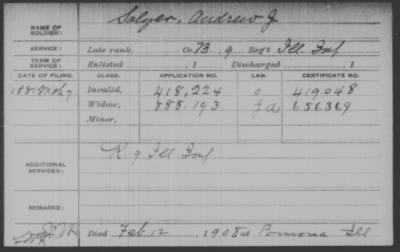 Salzer, Andrew J.
NAME OF SOLDIER:
SERVICE: Late rank, Co. B, 9 Reg't Ill Inf
TERM OF SERVICE: Enlisted , 1 Discharged , 1
DATE OF FILING. CLASS. APPLICATION NO. LAW. CERTIFICATE NO.
Invalid, 418,224 419,048
Widow, 888.193 656369
Minor,
ADDITIONAL SERVICES: K. 9 Ill Inf
REMARKS:
Died Feb 12, 1908 at Pomona Ill